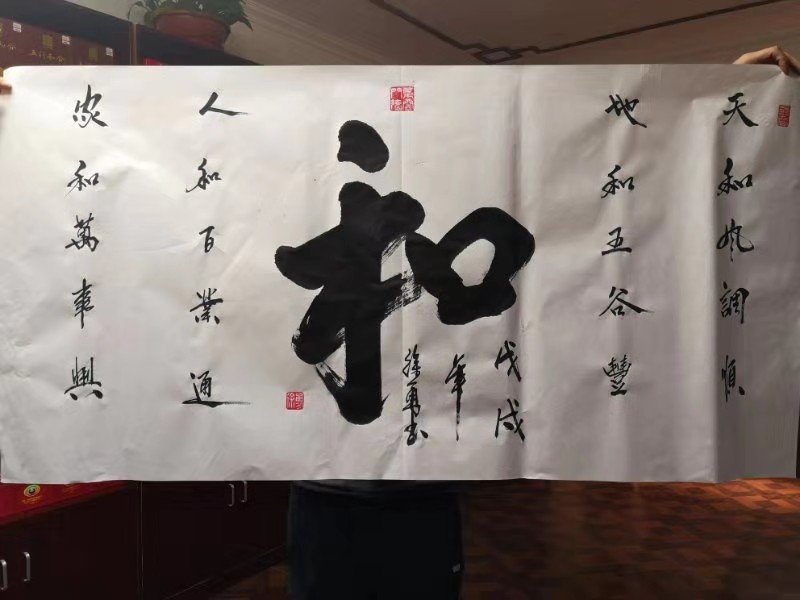 天和風調順
地和五谷豐
和
戊戌
年
徐勇書
人和百業通
家和萬事興